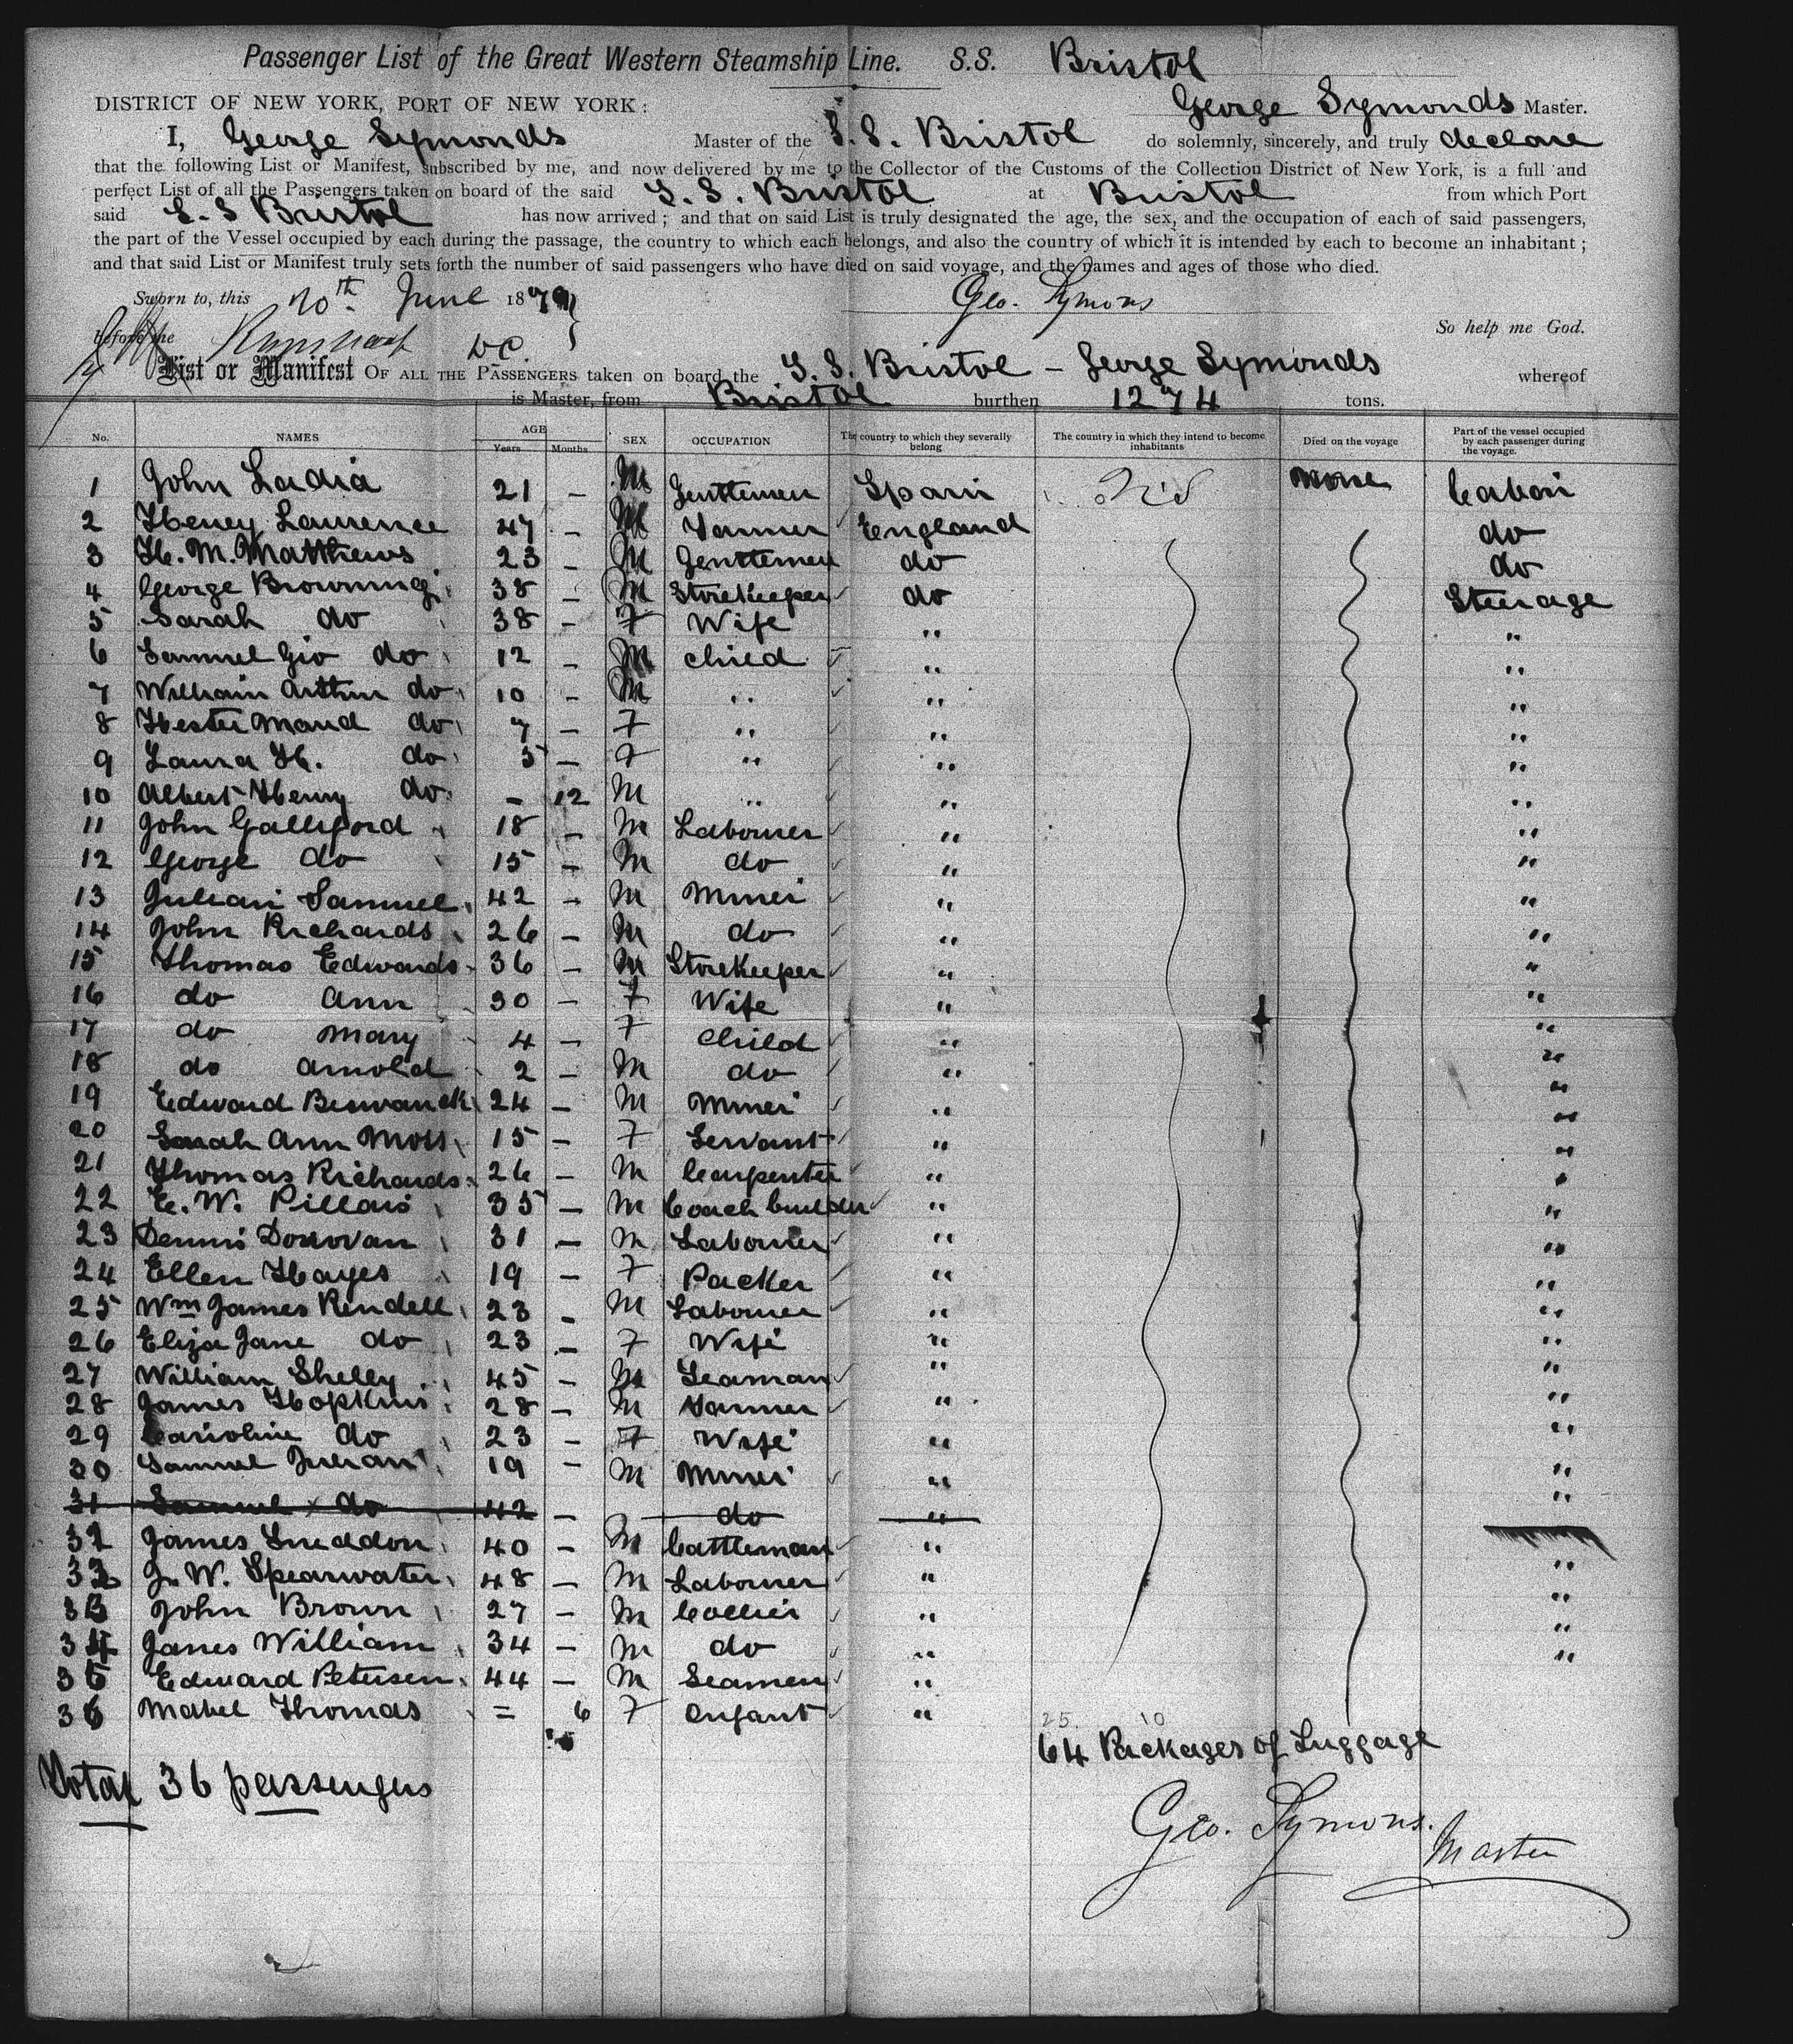 Passenger List of the Great Western Steamship Line. S.S. Bristol
DISTRICT OF NEW YORK, PORT OF NEW YORK: George Symonds Master.
I, George Symonds Master of the S.S. Bristol do solemnly, sincerely, and truly declare
that the following List or Manifest, subscribed by me, and now delivered by me to the Collector of the Customs of the Collection District of New York, is a full and
perfect List of all the Passengers taken on board of the said S.S. Bristol at Bristol from which Port
said S.S Bristol has now arrived; and that on said List is truly designated the age, the sex, and the occupation of each of said passengers,
the part of the Vessel occupied by each during the passage, the country to which each belongs, and also the country of which it is intended by each to become an inhabitant;
and that said List or Manifest truly sets forth the number of said passengers who have died on said voyage, and the names and ages of those who died.
Sworn to, this June 1879 Geo. Symons
before me So help me God.
List or Manifest OF ALL THE PASSENGERS taken on board the S.S. Bristol - George Symonds whereof
is Master, from Bristol burthen 1274 tons.
No. NAMES AGE Years Months SEX OCCUPATION The country to which they severally belong The country in which they intend to become inhabitants Died on the voyage Part of the vessel occupied by each passenger during the voyage.
1 John Ladia 21 - M Gentlemen Spain None Cabin
2 Heney Laurence 47 - M Farmer England do
3 H. M. Matthews 23 - M Gentlemen do do
4 George Browning 38 - M Storekeeper do Steerage
5 Sarah do 38 - F Wife " "
6 Samuel Geo do 12 - M Child " "
7 William Arthur do 10 - M " " "
8 Hester Maud do 7 - F " " "
9 Laura H. do 5 - F " " "
10 Albert Henry do - 12 M " " "
11 John Galliford 18 - M Labourer " "
12 George do 15 - M do " "
13 Julian Samuel 42 - M Miner " "
14 John Richards 26 - M do " "
15 Thomas Edwards 36 - M Storekeeper " "
16 do Ann 30 - F Wife " "
17 do Mary 4 - F Child " "
18 do Arnold 2 - M do " "
19 Edward 24 - M Miner " "
20 Sarah Ann Moss 15 - F Servant " "
21 Thomas Richards 26 - M Carpenter " "
22 E. W. 35 - M Coach builder " "
23 Dennis Donovan 31 - M Labourer " "
24 Ellen Hayes 19 - F Packer " "
25 Wm James Rendell 23 - M Labourer " "
26 Eliza Jane do 23 - F Wife " "
27 William Shelly 45 - M Seaman " "
28 James Hopkins 28 - M Farmer " "
29 Carioline do 23 - F Wife " "
30 Samuel Julian 19 - M Miner " "
31 Samuel do 42 - do "
32 James Sneddon 40 - M Cattleman " "
32 J. W. Spearwater 48 - M Labourer " "
33 John Brown 27 - M Collier " "
34 James William 34 - M do " "
35 Edward Petersen 44 - M Seamen "
36 Mabel Thomas = 6 F Infant "
25. 10
64 Packages of Luggage
Total 36 passengers
Geo. Symons.
Master